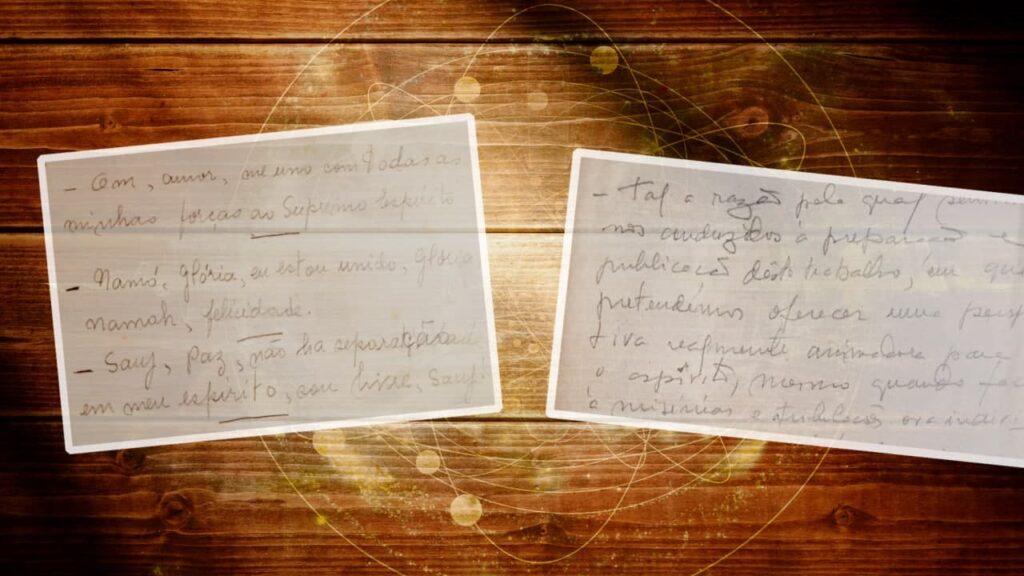 - Om, amor, me uno com todas as
minhas forças ao Supremo Espírito
- Namó, glória, eu estou unido, glória
namah, felicidade.
- Sauf, paz, não ha separação
em meu espírito, sou livre, Sauf
- Tal a razão pela qual
nos conduzidos à preparação e
publicação dêste trabalho, em que
pretendemos oferecer uma persp
tiva realmente animadora para
o espírito, mesmo quando
à misérias e tribulações